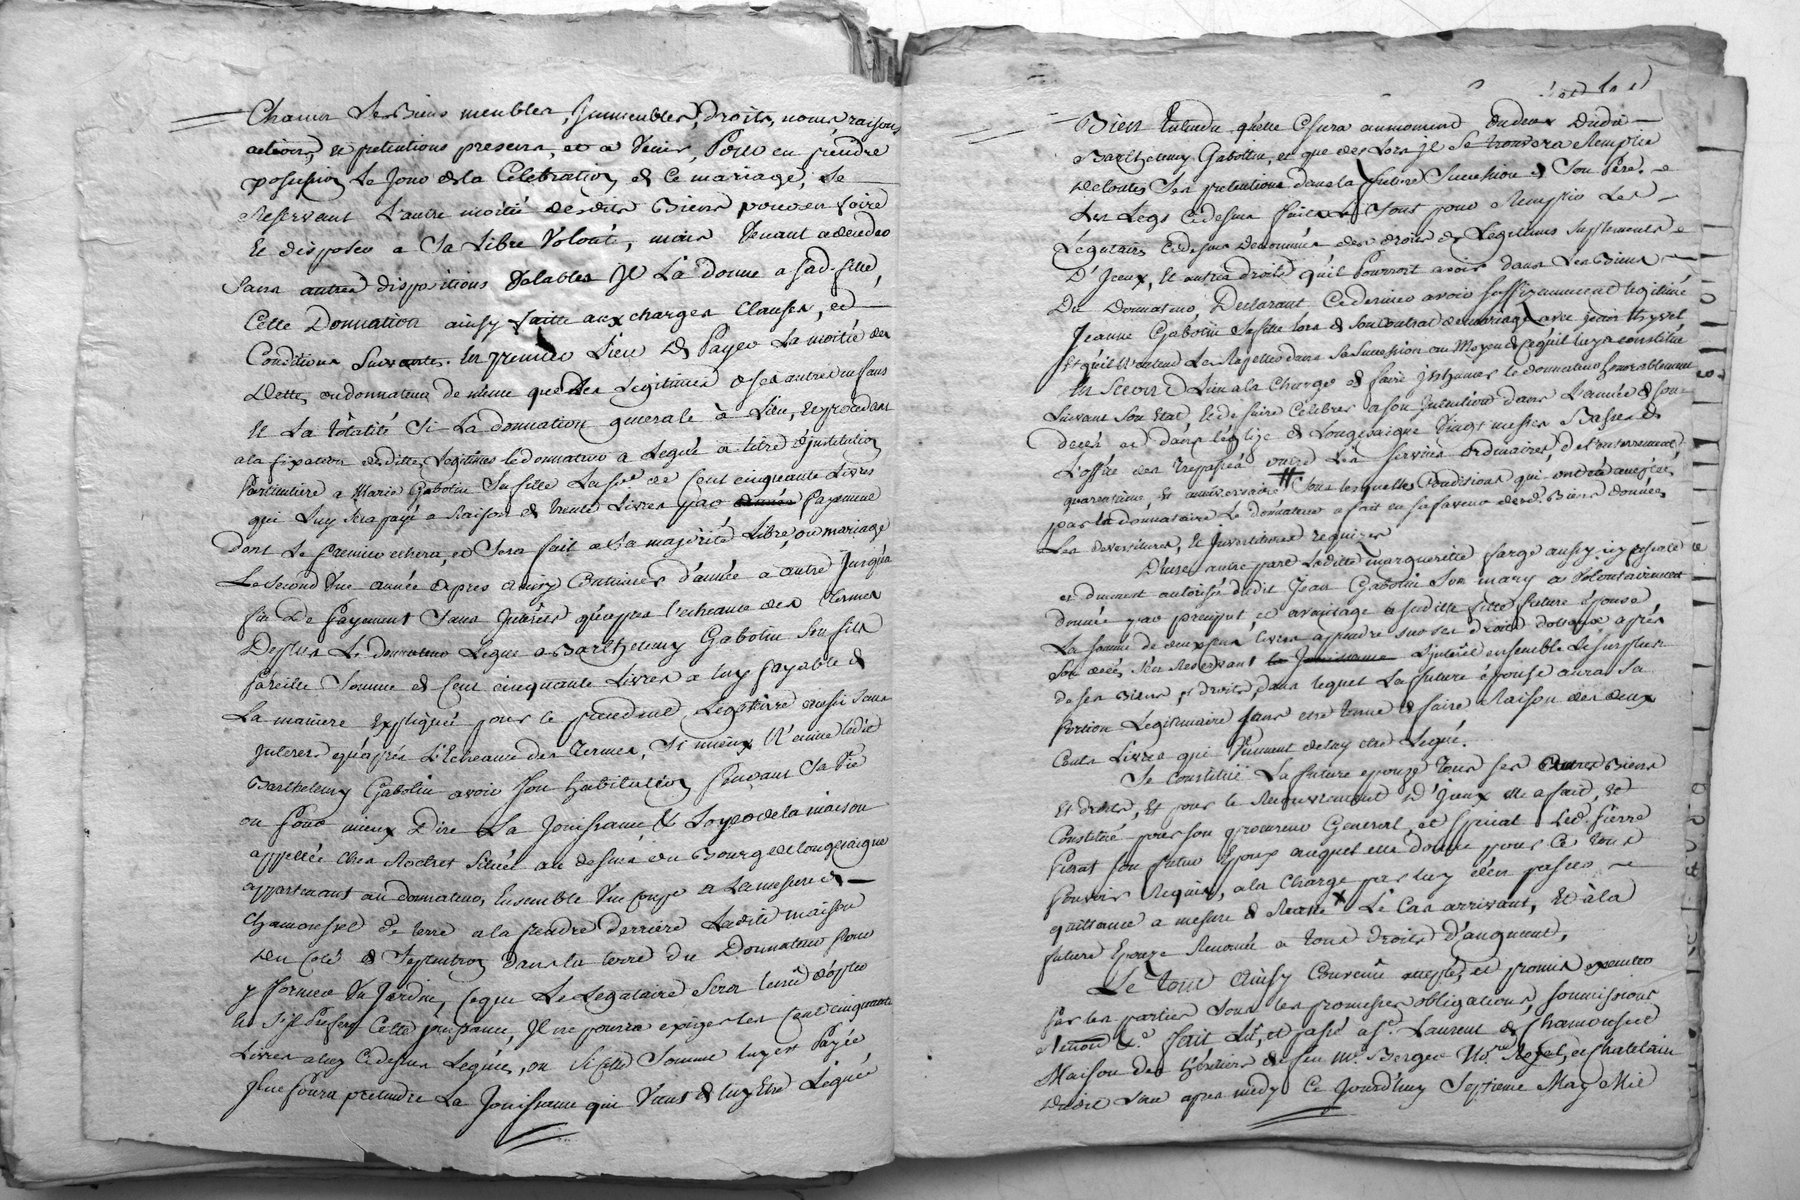 Chacun Ses Biens meubles, Immeubles, droits, noms, raisons
actions, et pretentions presens, et a Venir, Pour en prendre
possession Le Jour de la Celebration de Ce mariage, Se
Reservant L'autre moitié desdits Biens pour en Joire
Et disposer a Sa Libre Volonté, mais Venant a deceder
Sans autres dispositions Valables Il La donne a sad. fille,
Cette Donnation ainsy faitte aux charges Clauses, et
Conditions Suivantes. En premier Lieu de Payer La moitié des
Dettes du donnateur de même que des Legitimes de ses autres enfans
Et La tôtalité Si La donnation generale a Lieu, et procedant
a la fixation desdittes Legitimes le donnateur a Legué a titre d'institution
Particuliere a Marie Gabolin Sa fille La so.e de Cent cinquante Livres
qui Luy Sera payé a Raison de trente Livres par payement
dont Le premier echera, et Sera fait a Sa majorité Libre, ou mariage
Le Second Une année apres ainsy Continuer d'année a autre Jusqu'a
fin De payement Sans Interets qu'apres l'echeance des Termes
De plus Le donnateur Legue a Barthelemy Gabolin Son fils
Pareille Somme de Cent cinquante Livres a luy payable de
La maniere Expliquée pour le precedent Legataire aussi Sans
Interets qu'après L'Echeance des Termes, Si mieux N'aime ledit
Barthelemy Gabolin avoir Son habitation pendant Sa Vie
ou pour mieux Dire La Jouissance de Loyer de la maison
appellée chez Rochet Située au dessus du Bourg de Longesaigne
appartenant au donnateur, Ensemble Une Coupe a La mesure de
Chamousset de terre a la prendre derriere Ladite maison
Du Coté de Septentrion dans la terre du Donnateur pour
y former Un Jardin, Ce que Le Legataire Sera tenu d'opter
Et S'il Prefere Cette jouissance, Il ne pourra exiger les Cent cinquante
Livres a luy Cy dessus Leguées, ou Si cette Somme luy est Payée
Il ne Poura pretendre La Jouissance qui Vient de luy Etre Leguée
Bien Entendu quelle Cesera au moment du deces Dudit
Barthelemy Gabolin, et que des Lors Il Se trouvera Remplie
de toutes Ses pretentions dans la future Succession de Son Père.
Les Legs Cy dessus faits Sont pour Remplir Les
Legataires Cy dessus Denommés des droits de Legitimes Suplements
D'Iceux, Et autres droits qu'il Pouroit avoir dans Les Biens
Du Donnateur, Declarant Ce dernier avoir Suffizamment legitimé
Jeanne Gabolin Sa fille lors de Son Contrat de mariage avec
Et qu'il N'entend La Rapeller dans Sa Succession au Moyen de Ce qu'il luy a constitué
En Second Lieu a la Charge de faire Inhumer le donnateur honnorablement
Suivant Son Etat, Et de faire Celebrer a Son Intention dans L'année de Son
decés et dans l'eglize de Longesaigne Vingt messes Basses de
L'office des trepassés outre Les Services ordinaires, d'enterrement
quarantaine Et anniversaire Sous lesquelles Conditions qui ont été acceptées
par la donnataire Le donnateur a fait en sa faveur desd. Biens donnés
Les devestitures, Et Investitures requises
D'une autre part Laditte Marguerite farge aussy icy presente
et dument autorisée dudit Jean Gabolin Son mary a Volontairement
donnée par preciput, et avantage a Saditte fille future épouse
La Somme de deux Cent livres a prendre sur ses droits dotaux après
Son decés, S'en Reservant L'interêt ensemble Le Surplus
de Ses Biens, et droits, dans lequel La future épouse aura Sa
Portion Legitimaire Sans etre tenue de faire Raison des deux
Cents Livres qui Viennent de luy etre Legué.
Se Constitue La future epouze tous ses Autres Biens
Et droits, Et pour le Recouvrement D'Iceux elle a fait, Et
Constitué pour son procureur General, et Special Led. Pierre
Son futur Epoux auquel elle donne pour Ce tous
Pouvoirs Requis, a la Charge par luy d'en passer
quittance a mesure de Recette Le Cas arrivant, Et a la
future Epouze Renoncé a tous droits d'augment,
Le Tout Ainsy Convenu accepté, et promis executer
Par les parties Sous les promesses obligations, Soumissions
Renon &.c fait Lû, et passé a S.t Laurent de Chamousset
Maison des Heritiers de feu M.e Berger No.re Royal, et Chatelain
Dudit Lieu apres midy Ce Jourd'huy Septieme May Mil